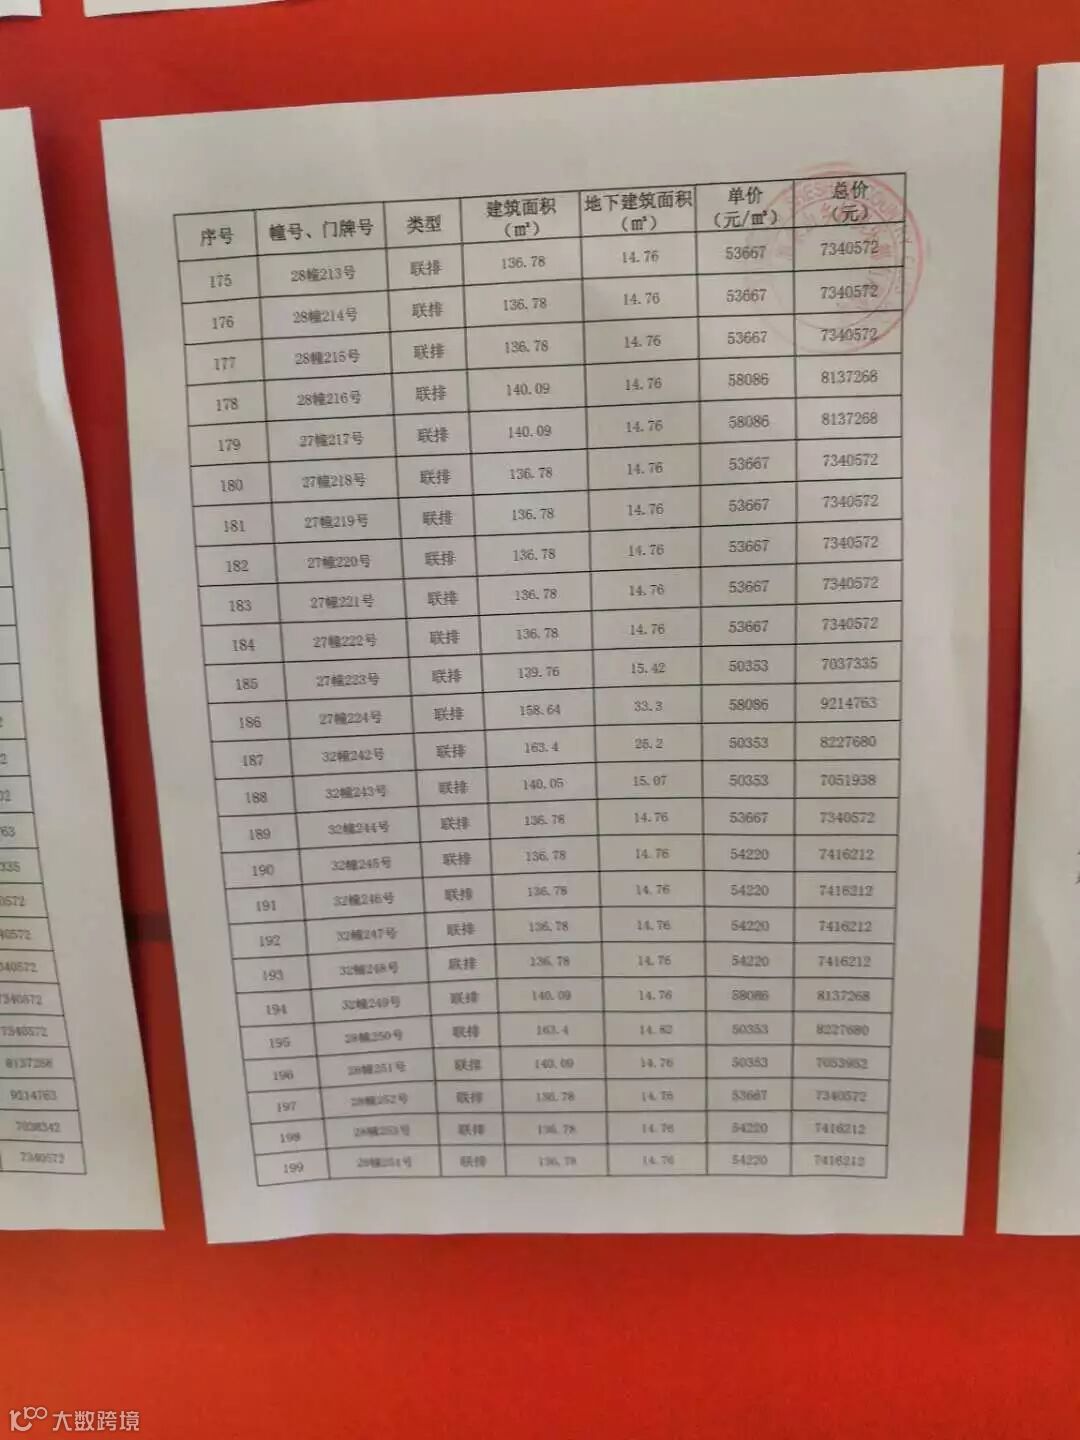 序号 幢号、门牌号 类型 建筑面积（㎡） 地下建筑面积（㎡） 单价（元/㎡） 总价（元）
175 28幢213号 联排 136.78 14.76 53667 7340572
176 28幢214号 联排 136.78 14.76 53667 7340572
177 28幢215号 联排 136.78 14.76 53667 7340572
178 28幢216号 联排 140.09 14.76 58086 8137268
179 27幢217号 联排 140.09 14.76 58086 8137268
180 27幢218号 联排 136.78 14.76 53667 7340572
181 27幢219号 联排 136.78 14.76 53667 7340572
182 27幢220号 联排 136.78 14.76 53667 7340572
183 27幢221号 联排 136.78 14.76 53667 7340572
184 27幢222号 联排 136.78 14.76 53667 7340572
185 27幢223号 联排 139.76 15.42 50353 7037335
186 27幢224号 联排 158.64 33.3 58086 9214763
187 32幢242号 联排 163.4 25.2 50353 8227680
188 32幢243号 联排 140.05 15.07 50353 7051938
189 32幢244号 联排 136.78 14.76 53667 7340572
190 32幢245号 联排 136.78 14.76 54220 7416212
191 32幢246号 联排 136.78 14.76 54220 7416212
192 32幢247号 联排 136.78 14.76 54220 7416212
193 32幢248号 联排 136.78 14.76 54220 7416212
194 32幢249号 联排 140.09 14.76 58086 8137268
195 28幢250号 联排 163.4 14.82 50353 8227680
196 28幢251号 联排 140.09 14.76 50353 7053952
197 28幢252号 联排 136.78 14.76 53667 7340572
198 28幢253号 联排 136.78 14.76 54220 7416212
199 28幢254号 联排 136.78 14.76 54220 7416212
763
335
0572
40572
340572
7340572
7340572
8137268
9214763
7038342
7340572
大数跨境